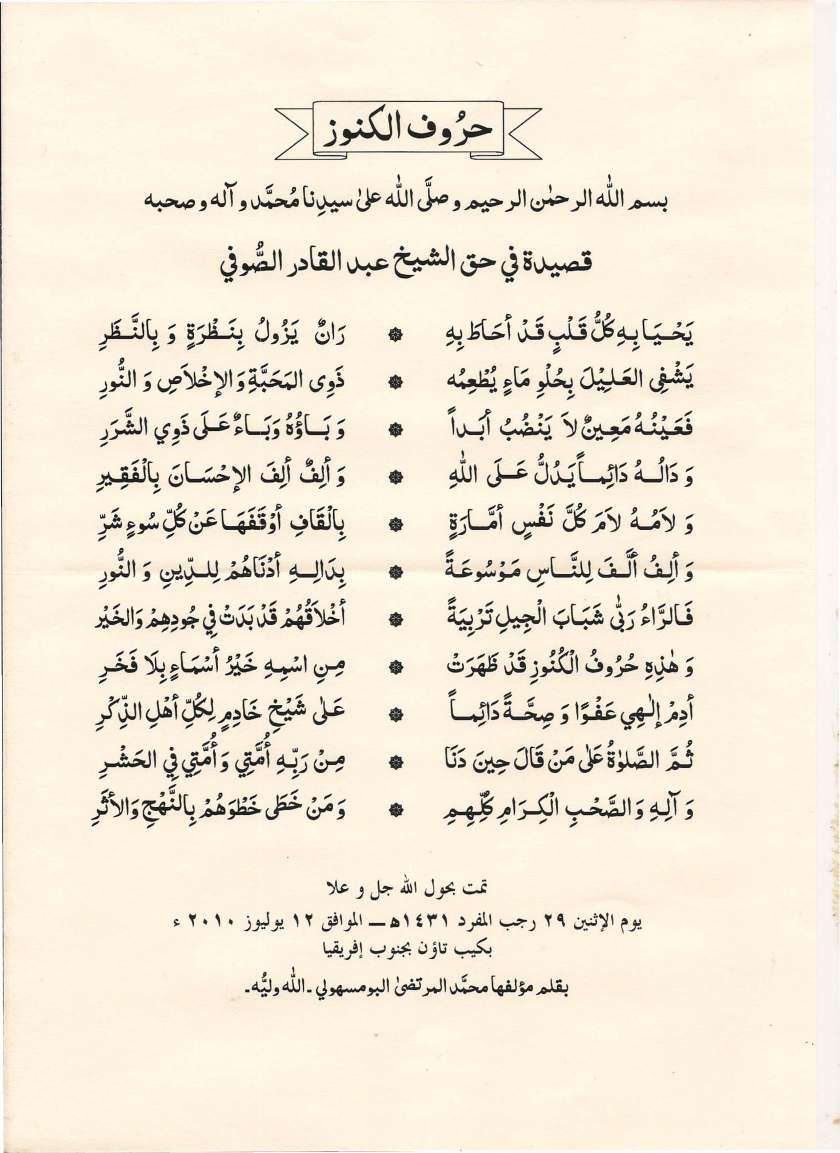 حرُوف الكنوز
بسم الله الرحمٰن الرحيم وصلَّى الله علىٰ سيدِنا مُحمَّد وآله وصحبه
قصيدة في حق الشيخ عبد القادر الصُّوفي
يَحْـيَـا بِـهِ كُلُّ قَـلْـبٍ قَـدْ أَحَاطَ بِهِ ۞ رَانٌ يَزُولُ بِنَـظْـرَةٍ وَ بِالنَّـظَرِ
يَشْفِى العَـلِيْلَ بِحُلْوِ مَاءٍ يُطْعِمُه ۞ ذَوِى المَحَبَّةِ وَ الإِخْلاَصِ وَ النُّورِ
فَعَيْـنُـهُ مَعِـينٌ لاَ يَنْضُبُ أَبَـداً ۞ وَ بَـاؤُهُ وَبَـاءٌ عَـلَى ذَوِي الشَّرَرِ
وَ دَالُـهُ دَائِمـاً يَدُلُّ عَـلَى اللهِ ۞ وَ أَلِفٌ أَلِفَ الإِحْسَـانَ بِالْفَقِـيرِ
وَ لاَمُـهُ لاَمَ كُلَّ نَفْسٍ أَمَّـارَةٍ ۞ بِالْقَافِ أَوْقَفَهَـا عَنْ كُلِّ سُوءٍ شَرِّ
وَ أَلِفُ أَلَّفَ لِلنَّـاسِ مَوْسُوعَـةً ۞ بِدَالِـهِ أَدْنَاهُمْ لِلـدِّينِ وَ النُّورِ
فَـالرَّاءُ رَبَّى شَبَابَ الْجِيلِ تَرْبِيَةً ۞ أَخْلاَقُهُمْ قَدْ بَدَتْ فِي جُودِهِمْ وَالخَيْر
وَ هٰذِهِ حُرُوفُ الْكُنُوزِ قَدْ ظَهَرَتْ ۞ مِـنِ اسْمِـهِ خَيْرُ أَسْمَـاءٍ بِلَا فَخَرِ
أَدِمْ إِلٰـهِي عَفْوًا وَ صِحَّـةً دَائِمـاً ۞ عَلىٰ شَيْخٍ خَادِمٍ لِكُلِّ أَهْلِ الذِّكْرِ
ثُـمَّ الصَّلوٰةُ عَلىٰ مَنْ قَالَ حِينَ دَنَا ۞ مِـنْ رَبِّـهِ أُمَّتِي وَ أُمَّتِي فِي الحَشْـرِ
وَ آلِـهِ وَ الصَّحْبِ الْكِـرَامِ كُلِّـهِـمِ ۞ وَ مَنْ خَطَى خَطْوَهُمْ بِالنَّهْجِ وَالأَثَرِ
تمت بحول الله جل و علا
يوم الإثنين ٢٩ رجب المفرد ١٤٣١هـ – الموافق ١٢ يوليوز ٢٠١٠ ء
بكيب تاؤن بجنوب إفريقيا
بقلم مؤلفها محمَّد المرتضىٰ البومسهولي ـ الله وليُّه ـ